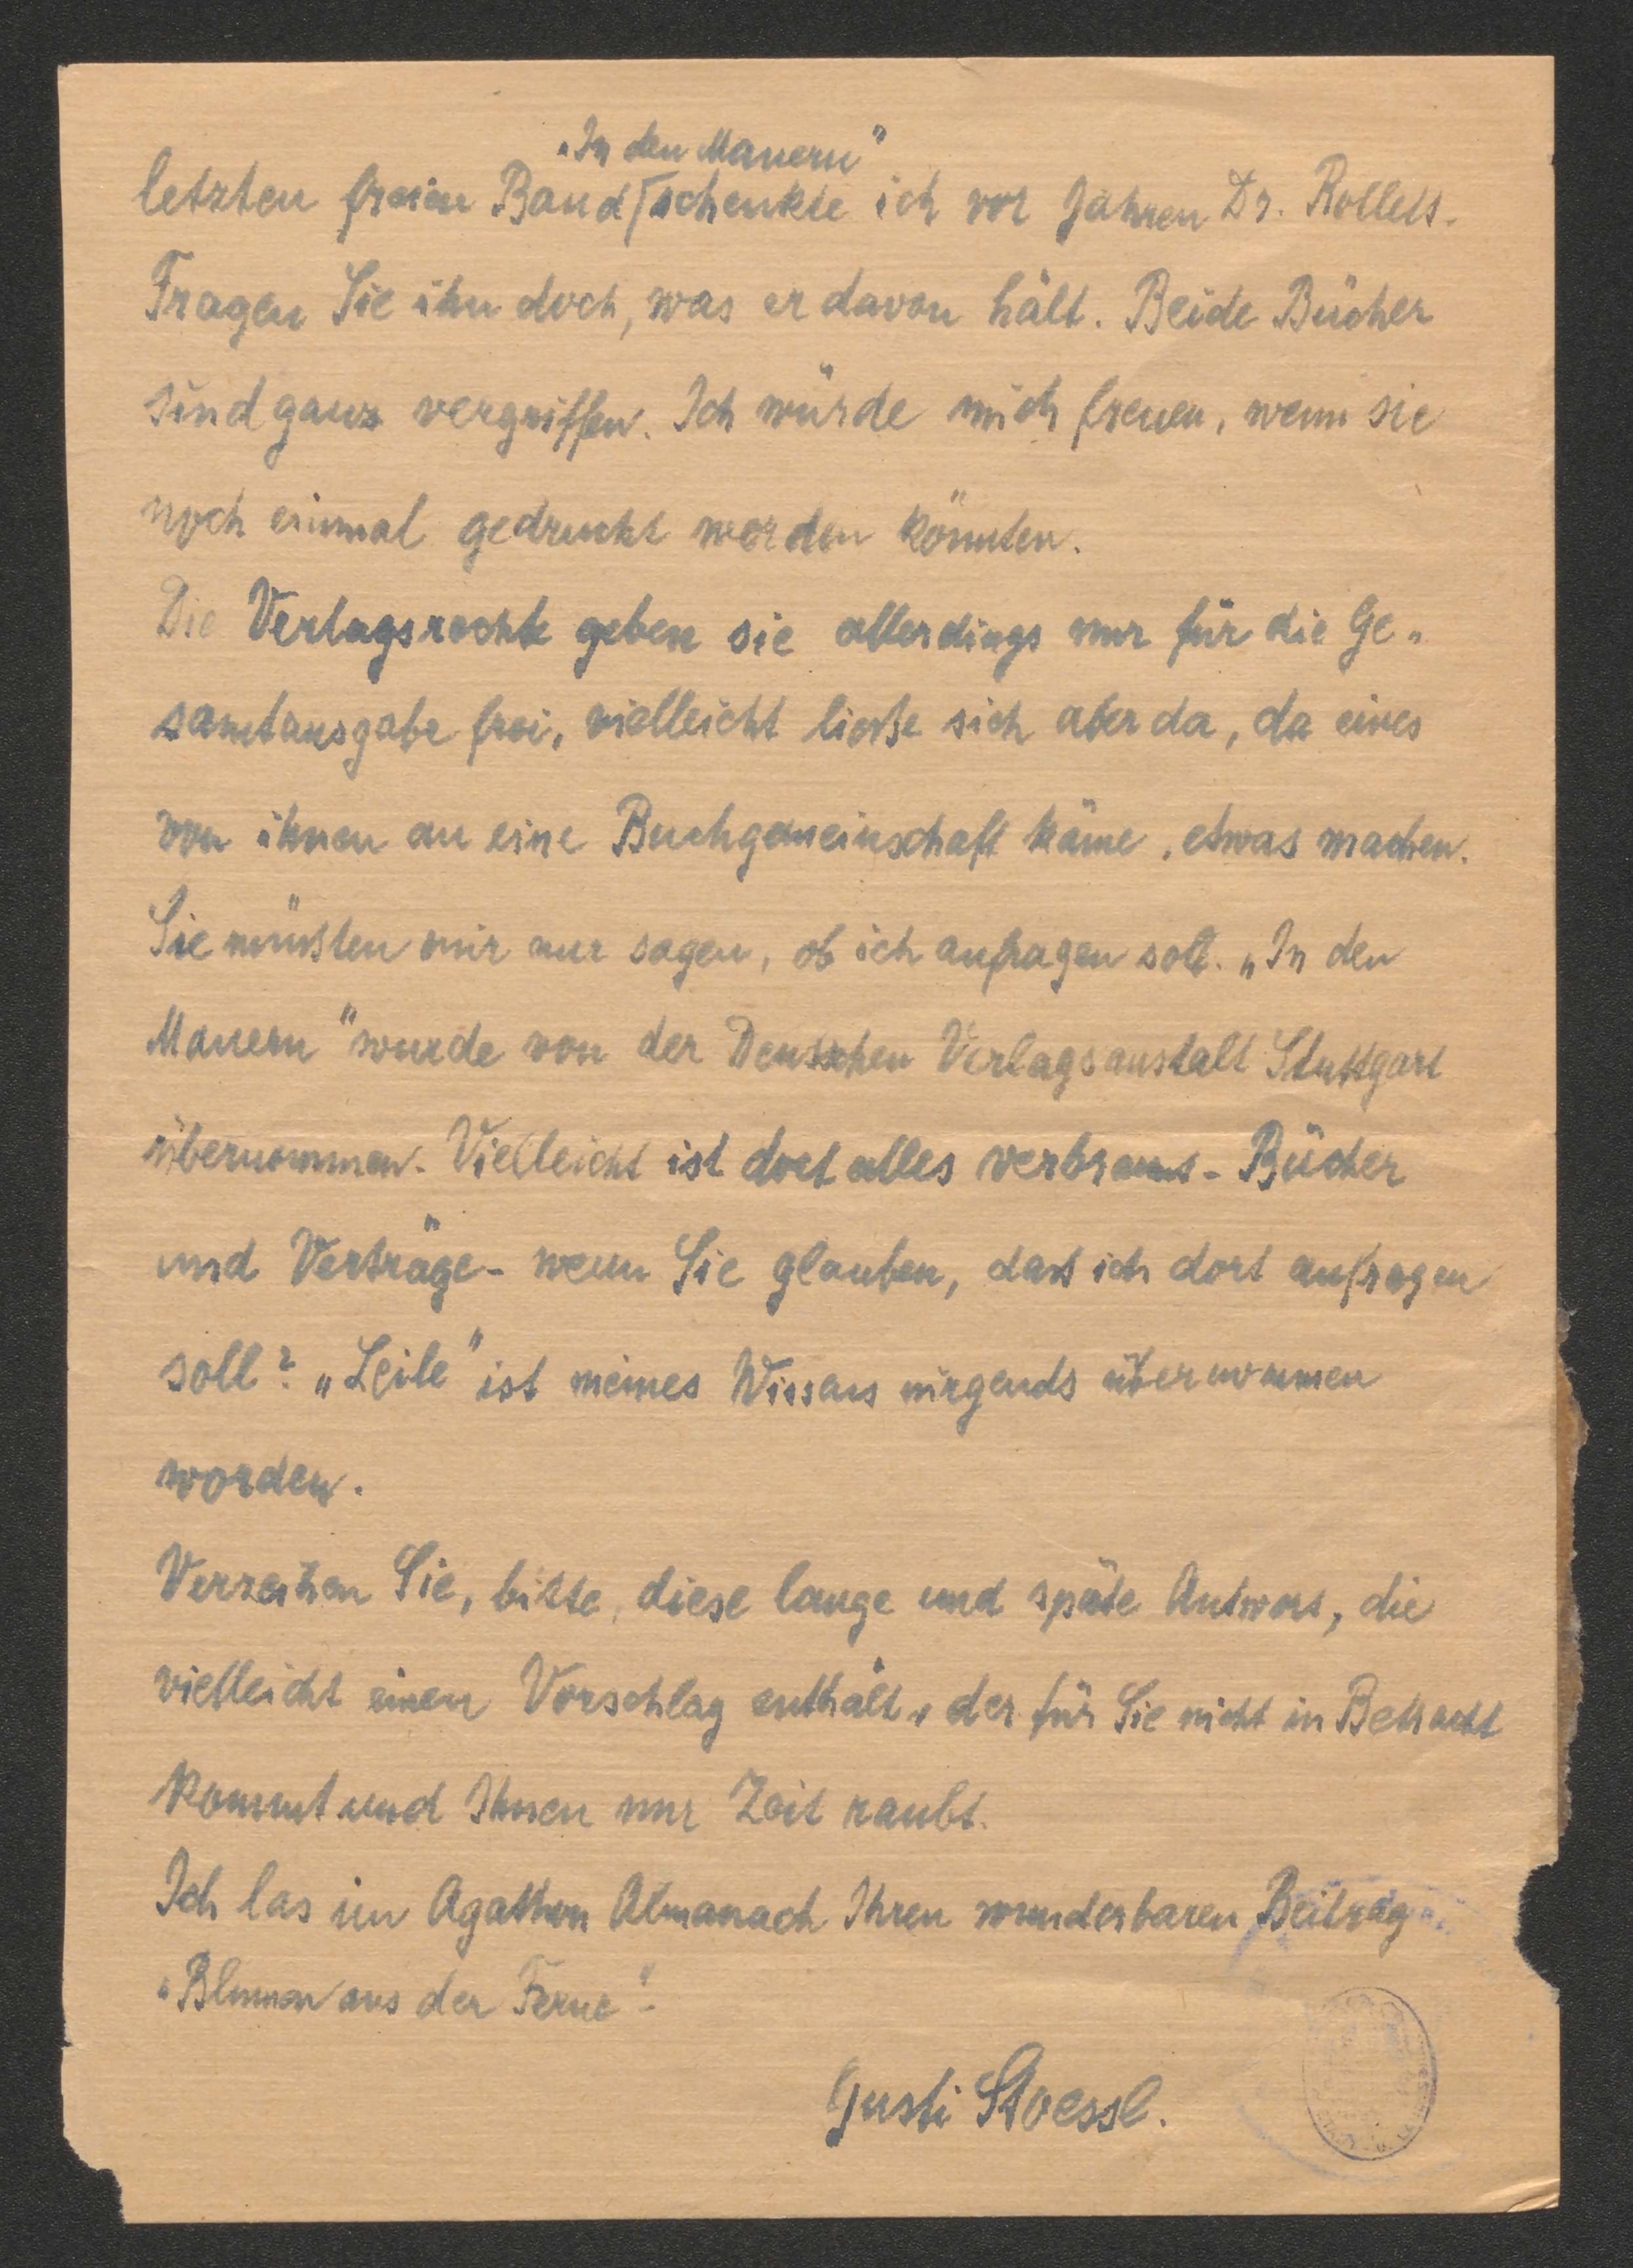 „In den Mauern"
letzten freien Band schenkte ich vor Jahren Dr. Rollett.
Fragen Sie ihn doch, was er davon hält. Beide Bücher
sind ganz vergriffen. Ich würde mich freuen, wenn sie
noch einmal gedruckt werden könnten.
Die Verlagsrechte geben sie allerdings nur für die Ge-
samtausgabe frei, vielleicht ließe sich aber da, da eines
von ihnen an eine Buchgemeinschaft käme, etwas machen.
Sie müßten mir nur sagen, ob ich anfragen soll. „In den
Mauern" wurde von der Deutschen Verlagsanstalt Stuttgart
übernommen. Vielleicht ist dort alles verbrannt - Bücher
und Verträge - wenn Sie glauben, dass ich dort anfragen
soll? „Leile" ist meines Wissens nirgends übernommen
worden.
Verzeihen Sie, bitte, diese lange und späte Antwort, die
vielleicht einen Vorschlag enthält, der für Sie nicht in Betracht
kommt und Ihnen nur Zeit raubt.
Ich las im Agathon Almanach Ihren wunderbaren Beitrag
„Blumen aus der Ferne".
Gusti Stoessl.